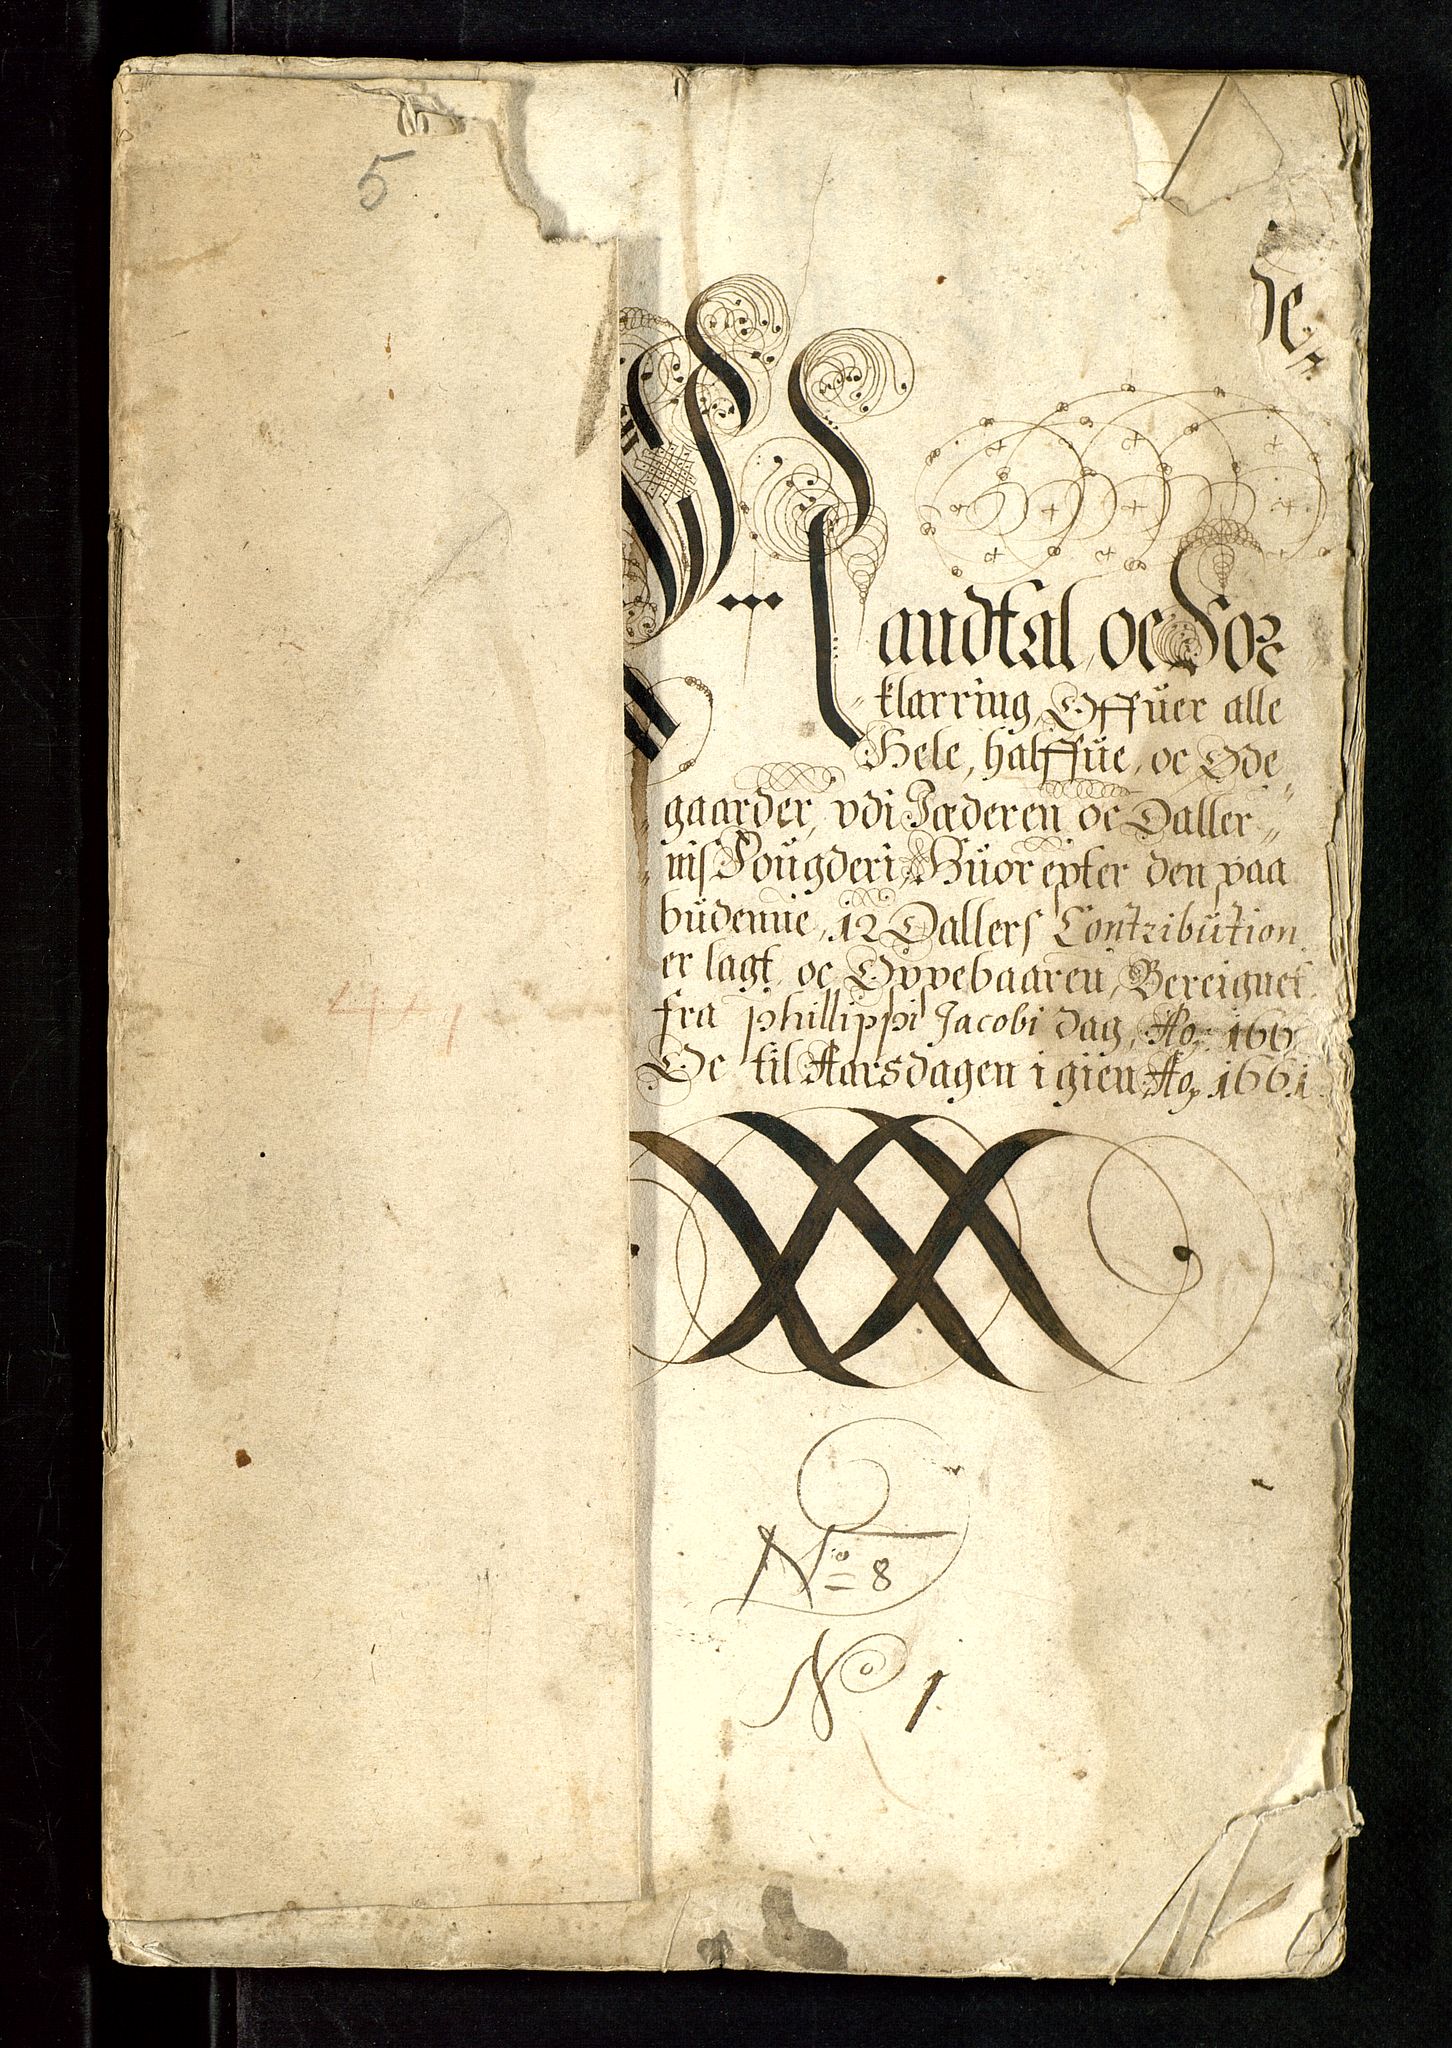 5
de
Mandtal, oc For
klarring, Offuer alle
Hele, halffue, oc Øde
gaarder, vdi Jæderen oc Daller
nis Fougderi, Huor epter den paa
budenne, 12 Dallers Contribution
er lagt, oc Oppebaaren, Bereignet
fra Phillippi Jacobi dag, Ao, 166
Oc til Aarsdagen igien Ao, 1661
No 8
No 1